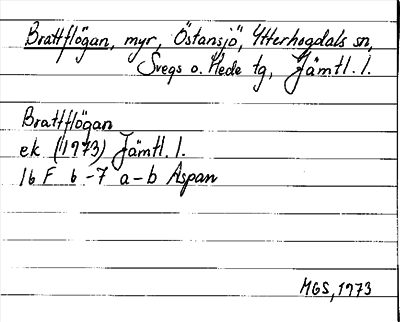 Brattflögan, myr, Östansjö, Ytterhogdals sn,
Svegs o. Hede tg, Jämtl. l.
Brattflögan
ek (1973) Jämtl. l.
16 F 6-7 a-b Aspan
MGS, 1973